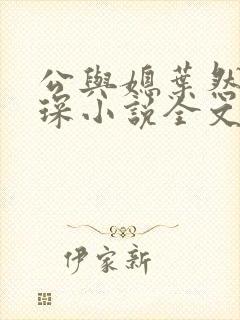 公與媳葉然
琛小説全文
伊家新